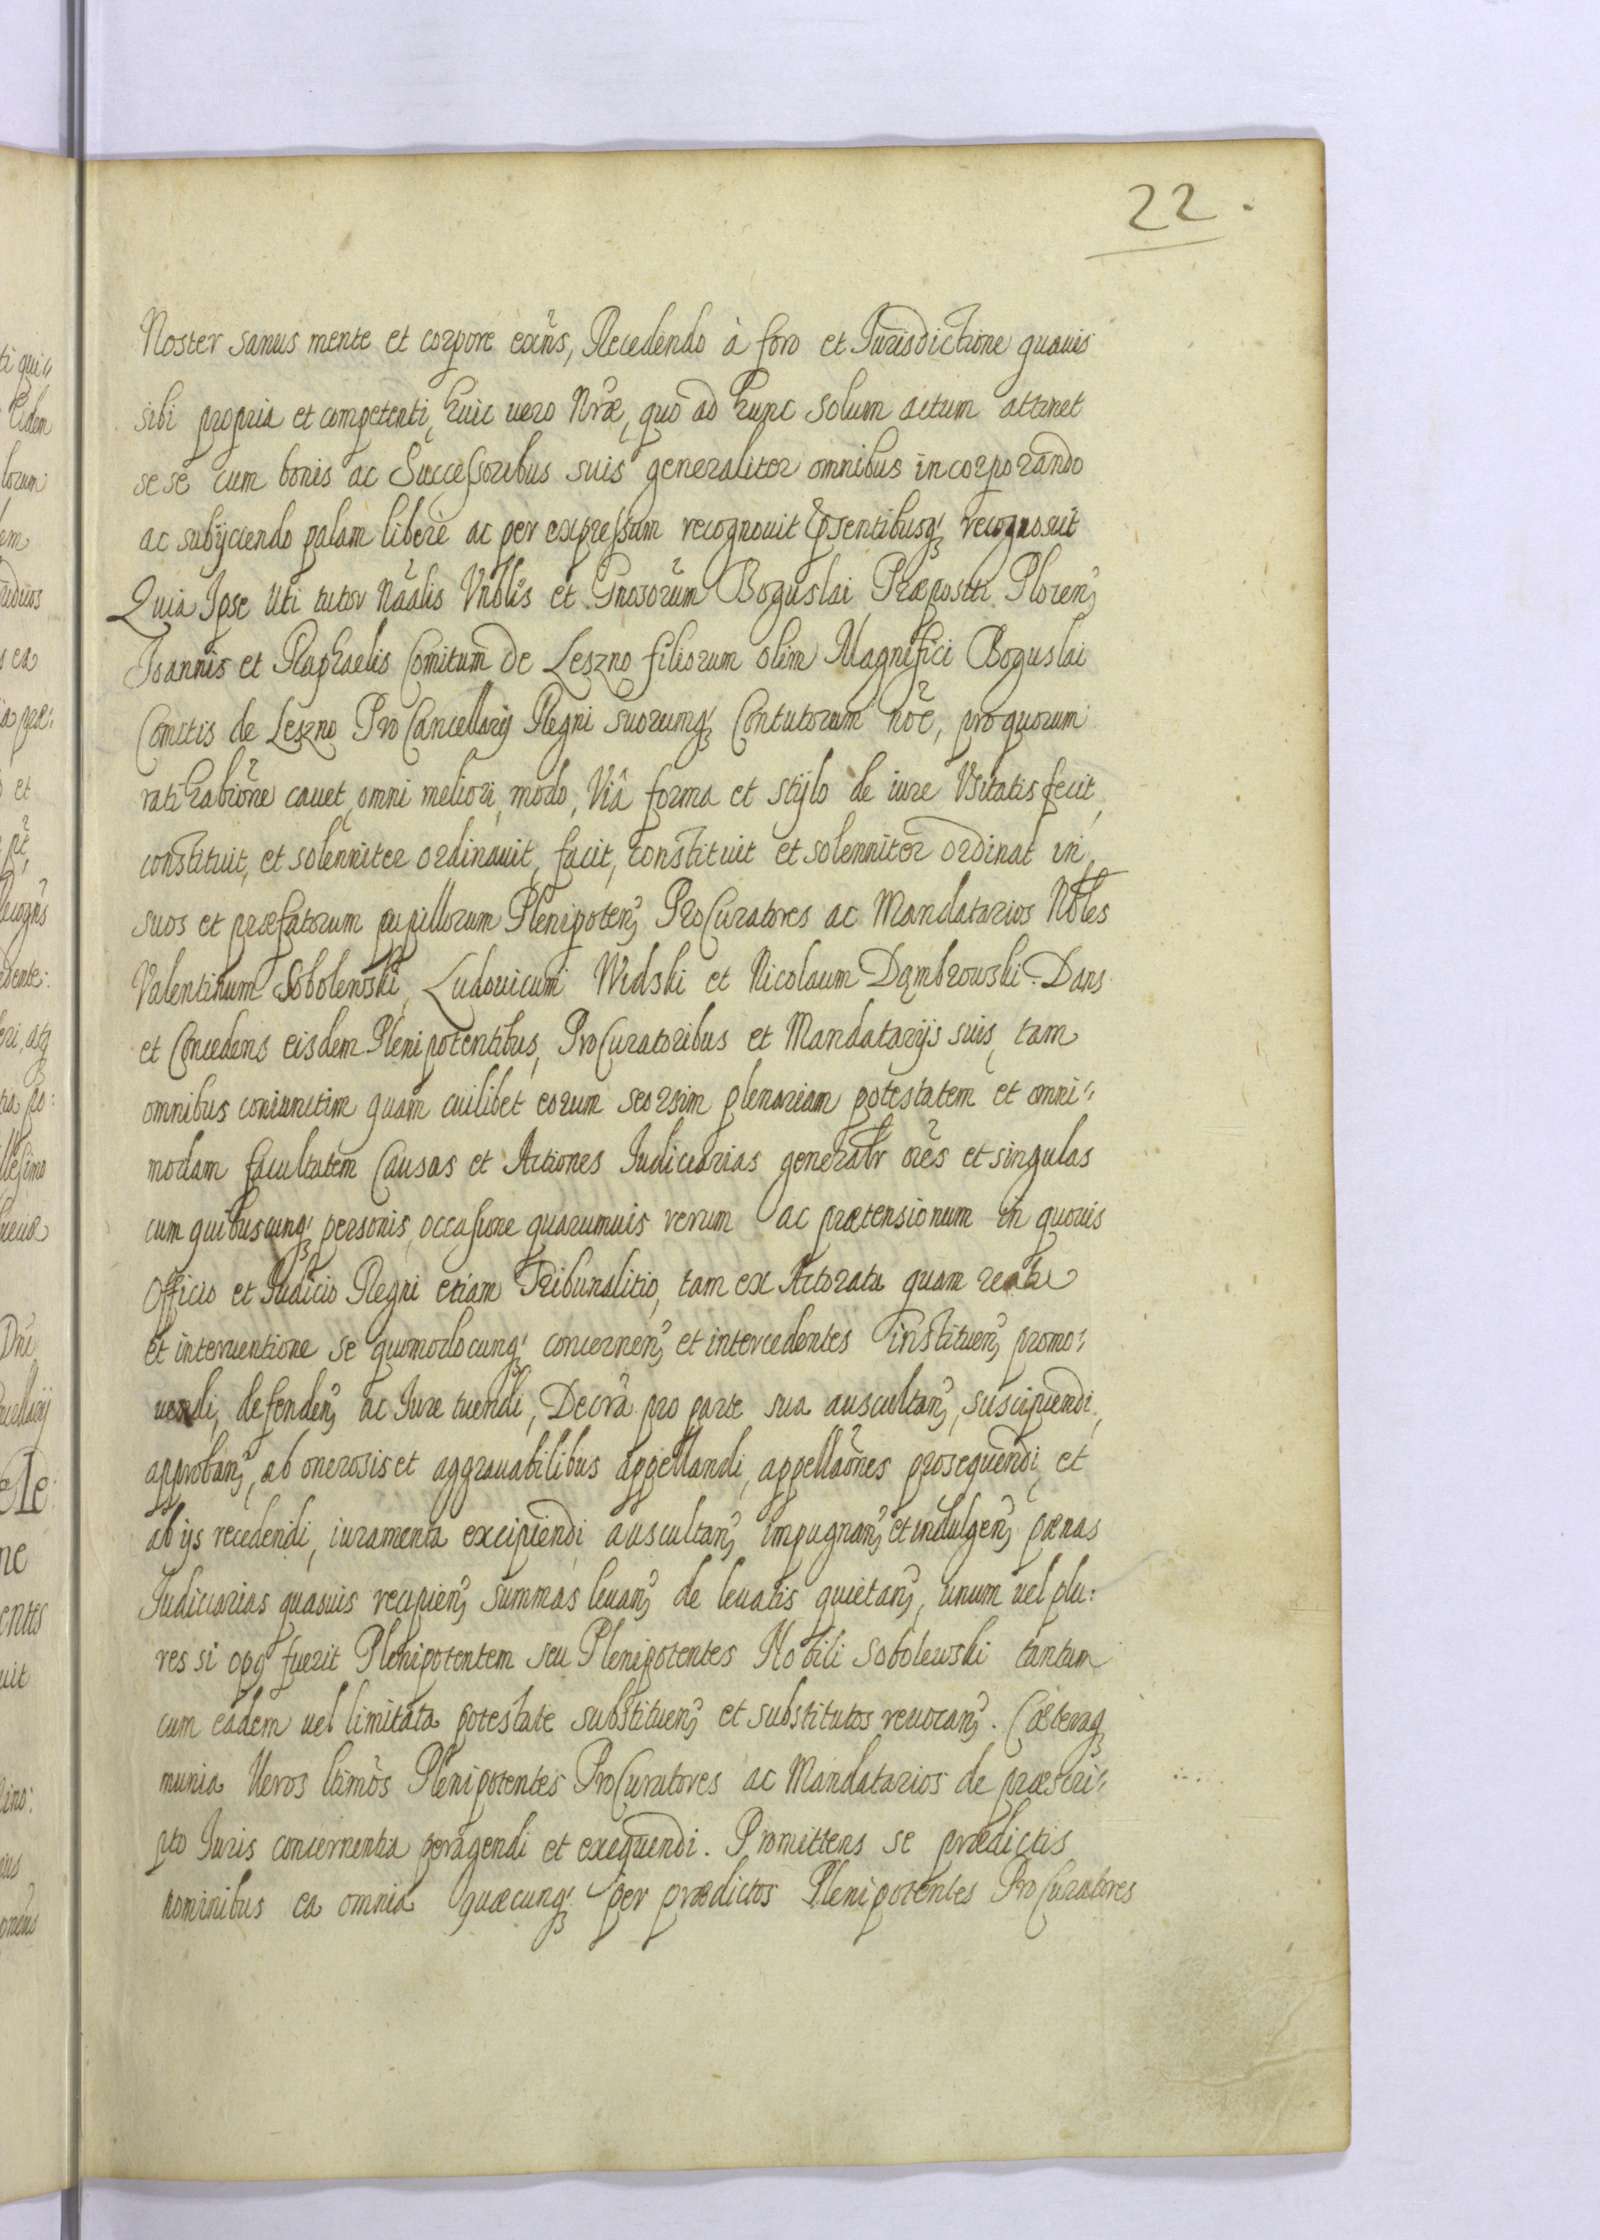 22.
Noster sanus mente et corpore exn̄s, Recedendo à foro et Jurisdictione quauis
sibi propria et competenti, huic vero Nr̄æ, quo ad hunc solum actum attinet
sese cum bonis ac Successoribus suis generaliter omnibus incorporando
ac subÿciendo palam liberè ac per expressum recognouit Pp̄sentibusq; recognoscit
Quia Ipse Uti tutor Nāalis Vrīblis et Gn̄osorum Boguslai Præpositi Plocen;
Joannis et Raphaelis Comitum de Leszno filiorum olim Magnifici Boguslai
Comitis de Leszno ProCancellarÿ Regni suorumq; Contutorum nōē, pro quorum
ratihabiōne cauet, omni meliori, modo, Viâ forma et stÿlo de iure Vsitatis fecit,
constituit, et solenniter ordinauit, facit, constituit et solenniter ordinat in
suos et præfatorum pupillorum Plenipoten; ProCuratores ac Mandatarios Nobles
Valentinum Sobolewski, Ludouicum Widski et Nicolaum Dąmbrowski. Dans
et Concedens eisdem Plenipotentibus, ProCuratoribus et Mandatarÿs suis, tam
omnibus coniunctim quam cuilibet eorum seorsim plenariam potestatem et omni„
modam facultatem Causas et Actiones Judiciarias generalr oēs et singulas
cum quibuscunq; personis, occasione quarumuis rerum ac prætensionum in quouis
Officio et Judicio Regni etiam Tribunalitio, tam ex Actoratu quam reatu
et interuentione se quomodocunq; concernen; et intercedentes instituen; promo„
uendi, defenden; ac Jure tuendi, Decrā pro parte sua auscultan;, suscipiendi,
approban;, ab onerosis et aggrauabilibus appellandi, appellāones prosequendi, et
ab ijs recedendi, iuramenta excipiendi auscultan; impugnan; et indulgen; pœnas
Judiciarias quasuis recipien; summas leuan; de leuatis quietan;, unum vel plu:
res si opq fuerit Plenipotentem seu Plenipotentes Nobili Sobolewski tantum
cum eadem vel limitata potestate substituen; et substitutos reuocan;. Cæteraq;
munia Veros ltimōs Plenipotentes ProCuratores ac Mandatarios de præscri„
pto Juris concernentia peragendi et exequendi. Promittens se prædictis
nominibus ea omnia quæcunq; per prædictos Plenipotentes ProCuratores